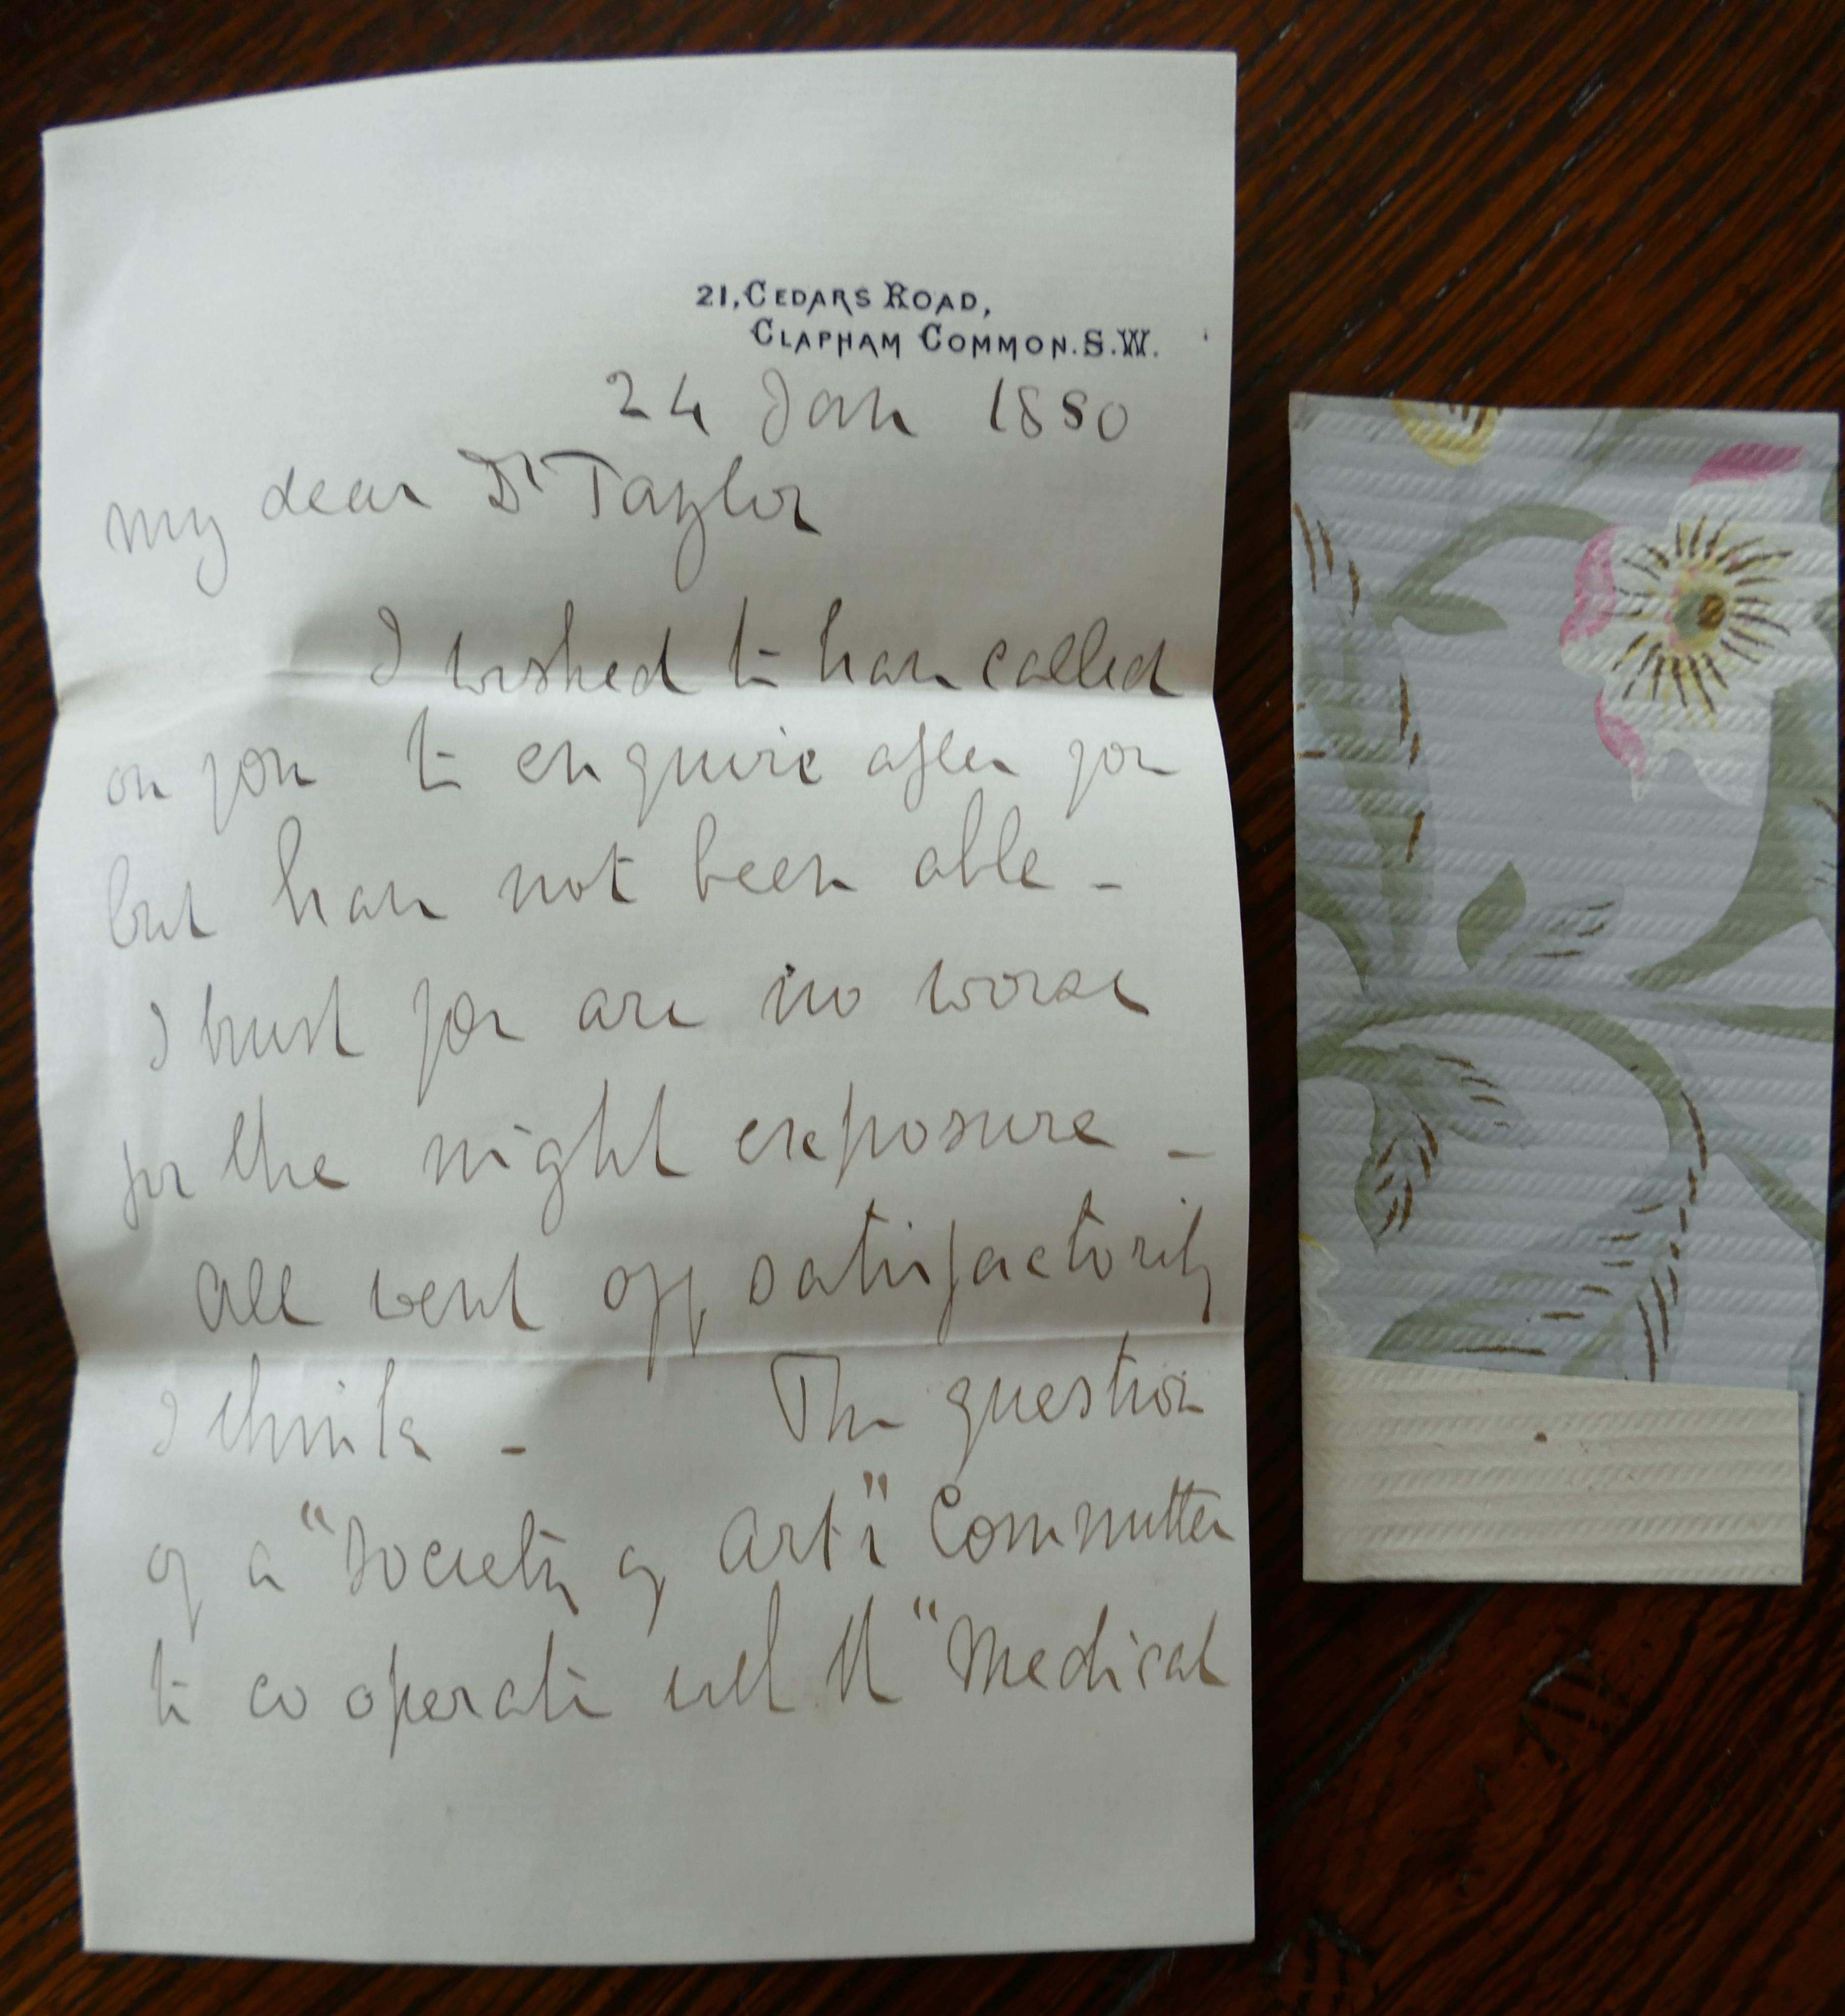 21, CEDARS ROAD,
CLAPHAM COMMON. S.W.
24 Jan 1880
My dear Dr Taylor
I wished to have called
on you to enquire after you
but have not been able -
I trust you are no worse
for the night exposure -
All went off satisfactorily
I think - The question
of a "Society of Arts" Committee
to co operate with the "Medical